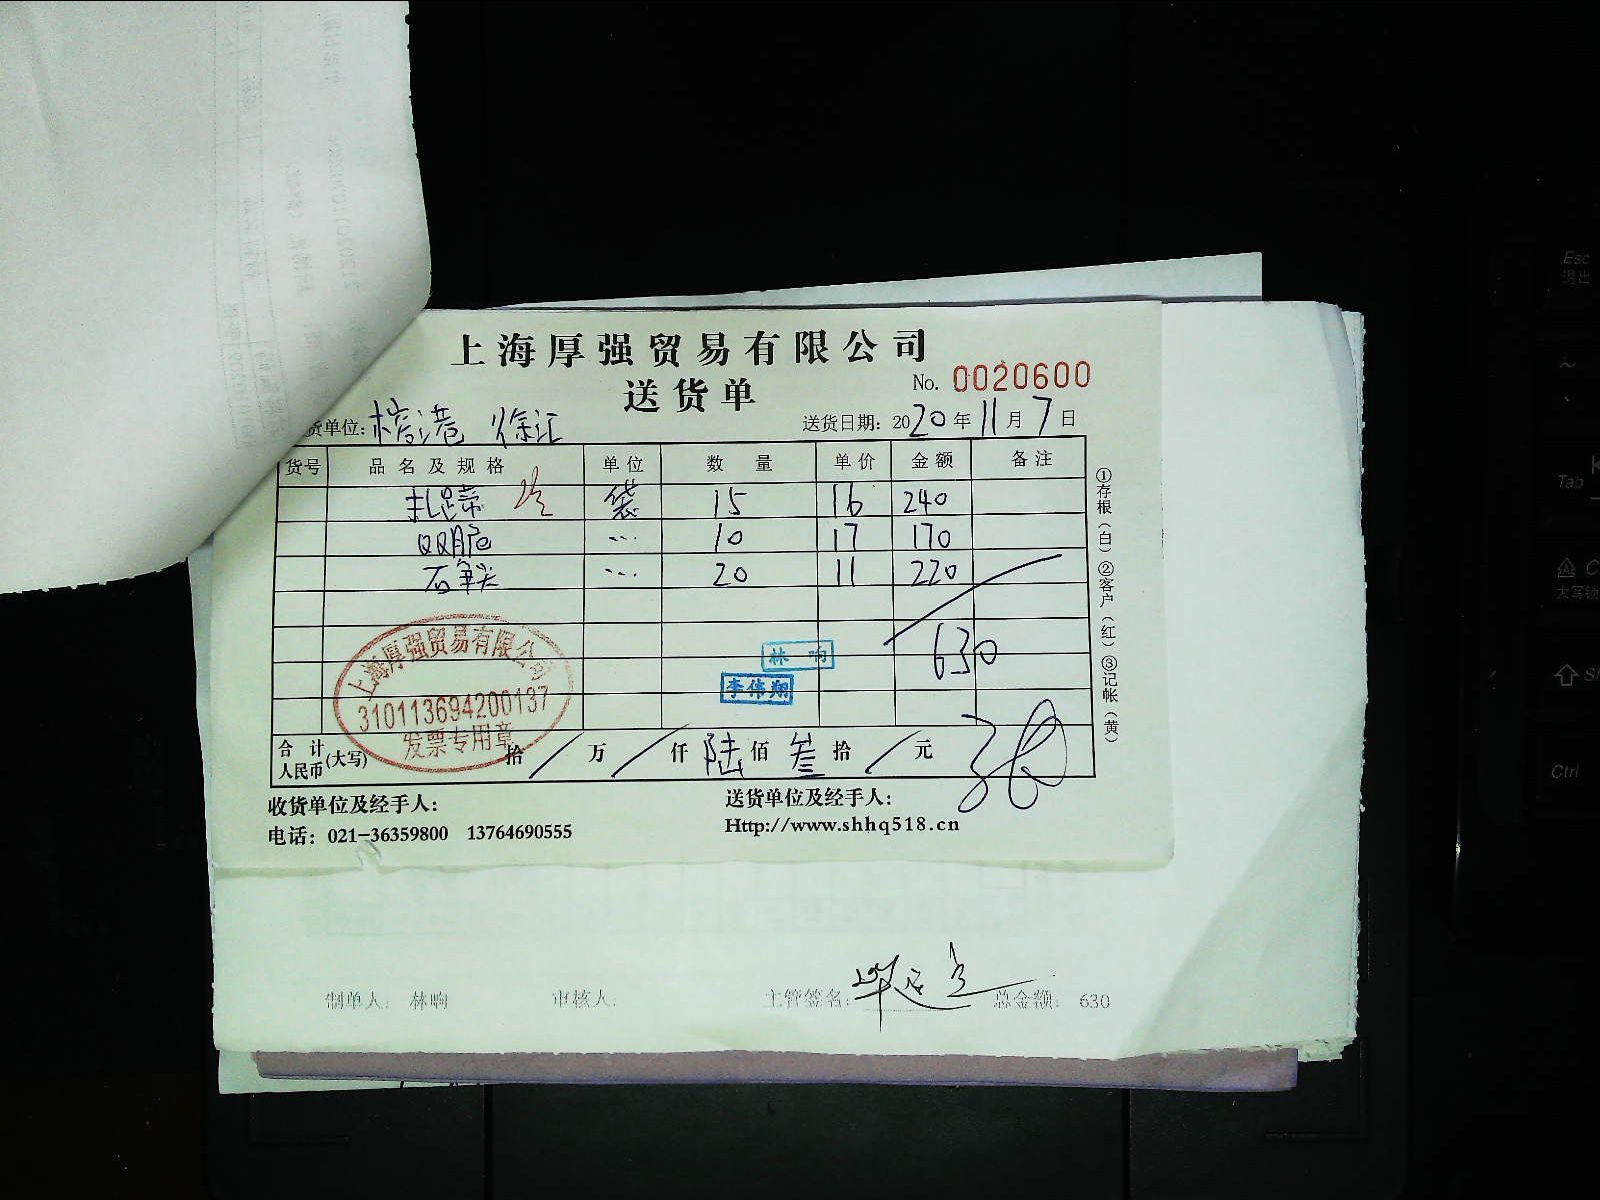 上海厚强贸易有限公司
送货单
No. 0020600
货单位: 港 徐汇
送货日期: 2020年11月7日
货号 品名及规格 单位 数量 单价 金额 备注
扎蹄 袋 15 16 240
双脆 … 10 17 170
石 … 20 11 220
630
林响
李伟翔
上海厚强贸易有限公司
310113694200137
发票专用章
合计人民币(大写) 拾 / 万 / 仟 陆 佰 叁 拾 / 元
①存根(白)②客户(红)③记帐(黄)
收货单位及经手人: 送货单位及经手人:
电话: 021-36359800 13764690555 Http://www.shhq518.cn
制单人: 林响 审核人: 主管签名: 总金额: 630
Esc
退出
~
Tab
大写锁
Ctrl